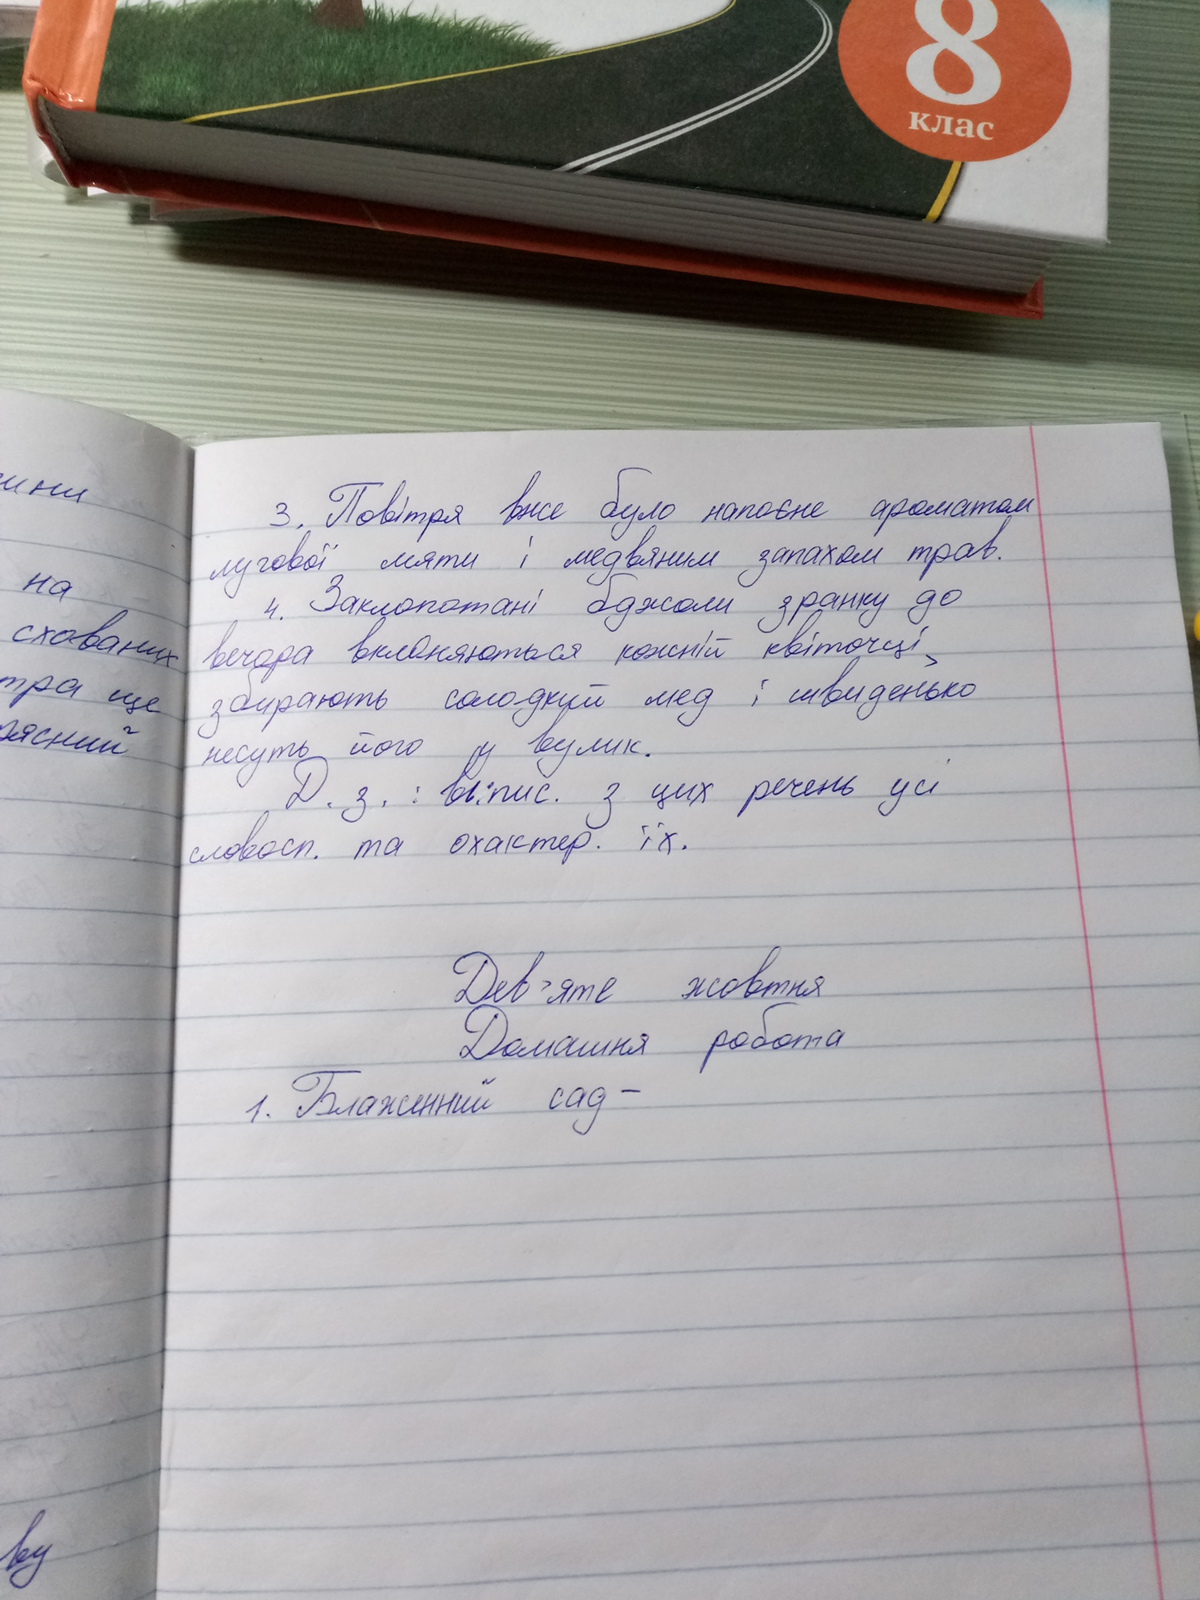 8
клас
на
схованих
тра ще
рясний
ву
3. Повітря вже було напоєне ароматом
лугової мяти і медвяним запахом трав.
4. Заклопотані бджоли зранку до
вечора вклоняються кожній квіточці,
збирають солодкий мед і швиденько
несуть його у вулик.
Д. з. : випис. з цих речень усі
словосп. та охактер. їх.
Дев'яте жовтня
Домашня робота
1. Блаженний сад -